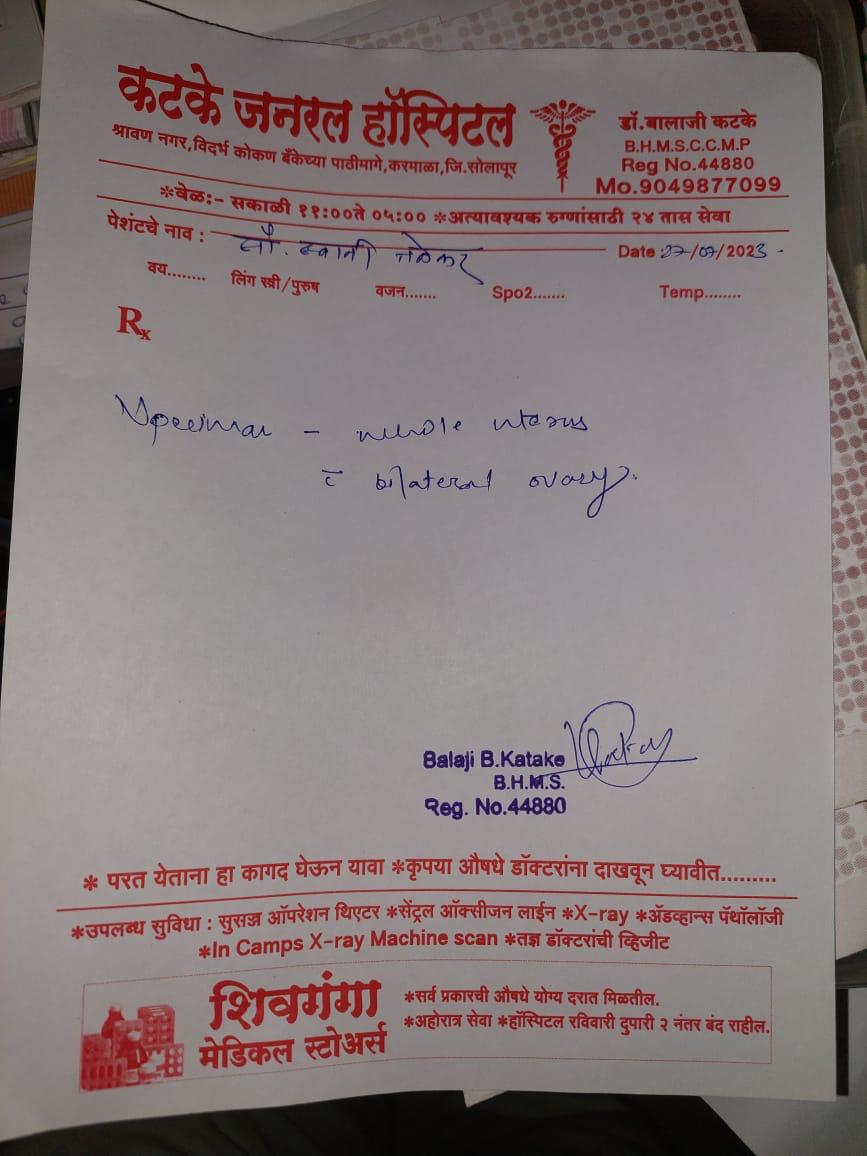 कटके जनरल हॉस्पिटल
श्रावण नगर,विदर्भ कोकण बँकेच्या पाठीमागे,करमाळा,जि.सोलापूर
डॉ.बालाजी कटके
B.H.M.S.C.C.M.P
Reg No.44880
Mo.9049877099
*वेळ:- सकाळी ११:००ते ०५:०० *अत्यावश्यक रुग्णांसाठी २४ तास सेवा
पेशंटचे नाव : सौ. स्वाती
Date :27/07/2023
वय........ लिंग स्त्री/पुरुष वजन....... Spo2....... Temp........
Rx
Specimen - whole uterus
c̄ bilateral ovary.
Balaji B.Katake
B.H.M.S.
Reg. No.44880
* परत येताना हा कागद घेऊन यावा *कृपया औषधे डॉक्टरांना दाखवून घ्यावीत.........
*उपलब्ध सुविधा : सुसज्ज ऑपरेशन थिएटर *सेंट्रल ऑक्सीजन लाईन *X-ray *ॲडव्हान्स पॅथॉलॉजी
*In Camps X-ray Machine scan *तज्ञ डॉक्टरांची व्हिजीट
शिवगंगा
मेडिकल स्टोअर्स
*सर्व प्रकारची औषधे योग्य दरात मिळतील.
*अहोरात्र सेवा *हॉस्पिटल रविवारी दुपारी २ नंतर बंद राहील.